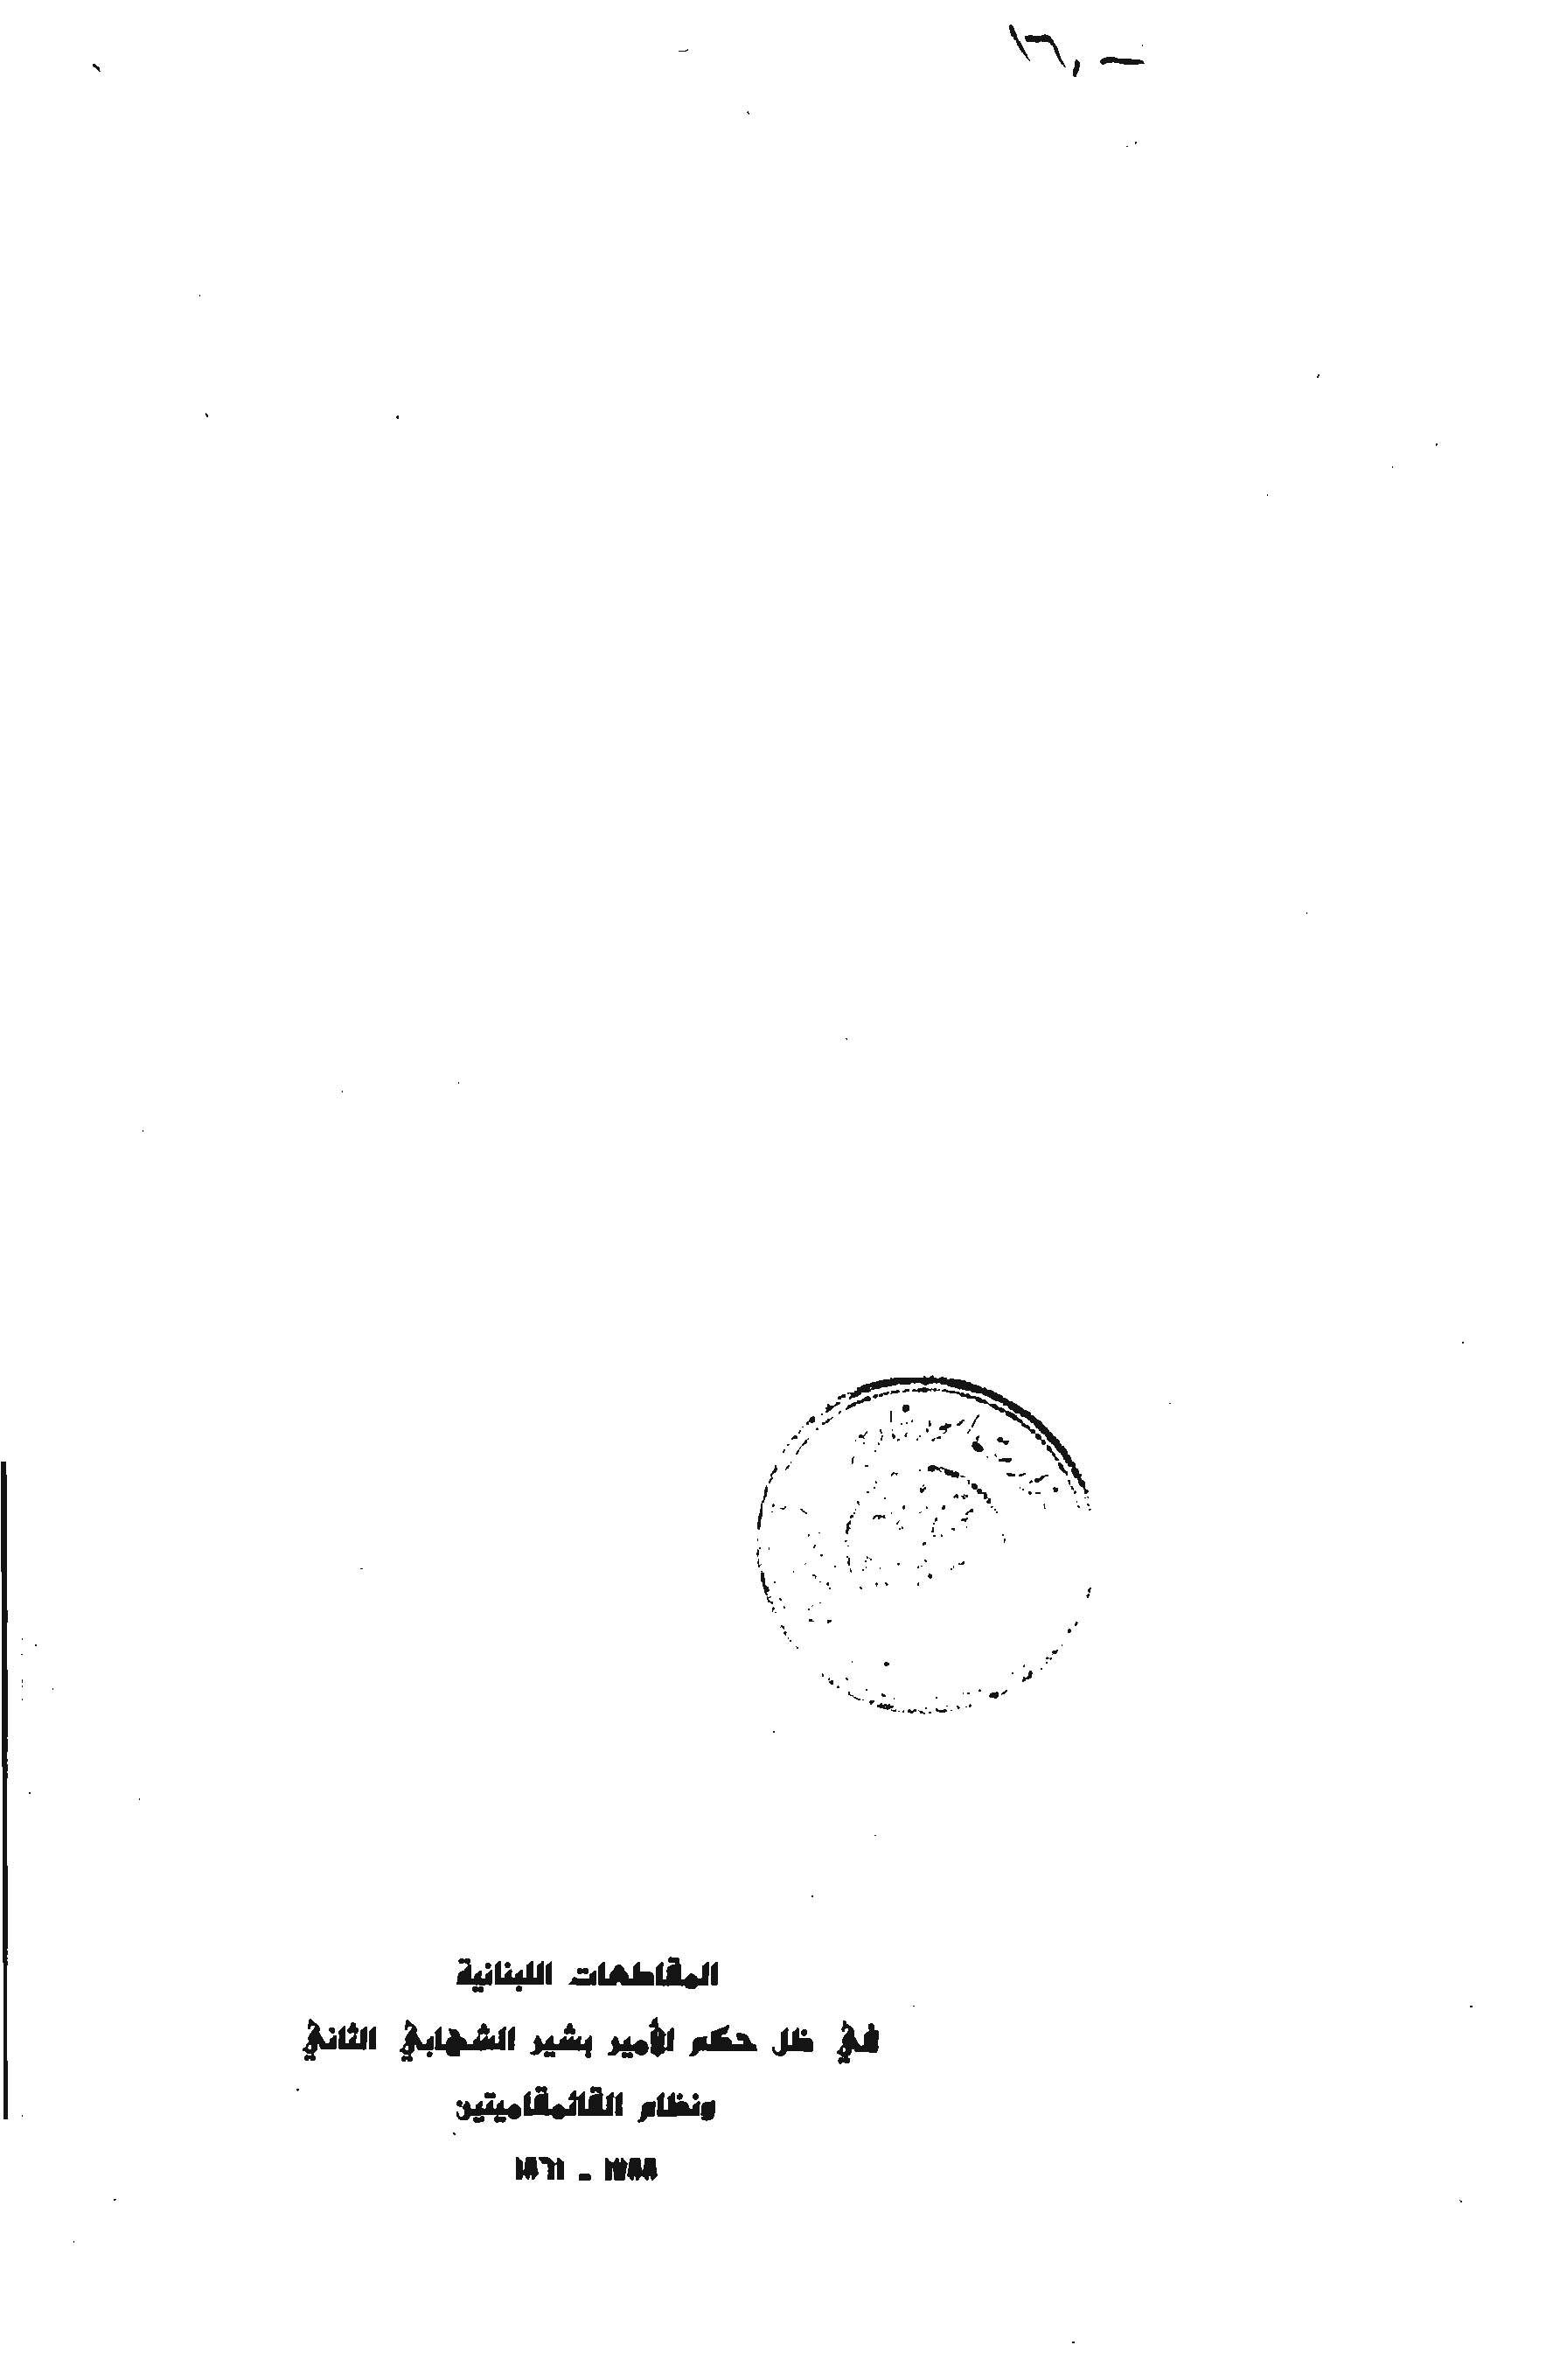 ١٦,—
المقاطعات اللبنانية
في ظل حكم الأمير بشير الشهابي الثاني
ونظام القائمقاميتين
١٧٨٨ - ١٨٦١